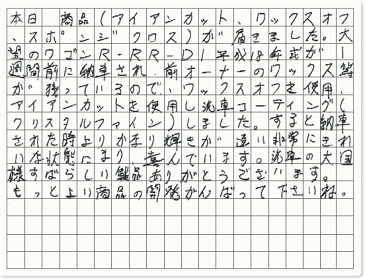 本日、商品(アイアンカット、ワックスオフ
、スポンジ、クロス)が届きました。大
望のワゴンR-RR-DI平成18年式が1
週間前に納車され、前オーナーのワックス等
が残っているので、ワックスオフを使用、
アイアンカットを使用し洗車コーティング(
クリスタルファイン)しました。すると納車
された時よりかなり輝きが違い非常にきれ
いな状態になり、喜んでいます。洗車の大国
様すばらしい製品ありがとうございます。
もっとよい商品の開発がんばって下さいね。